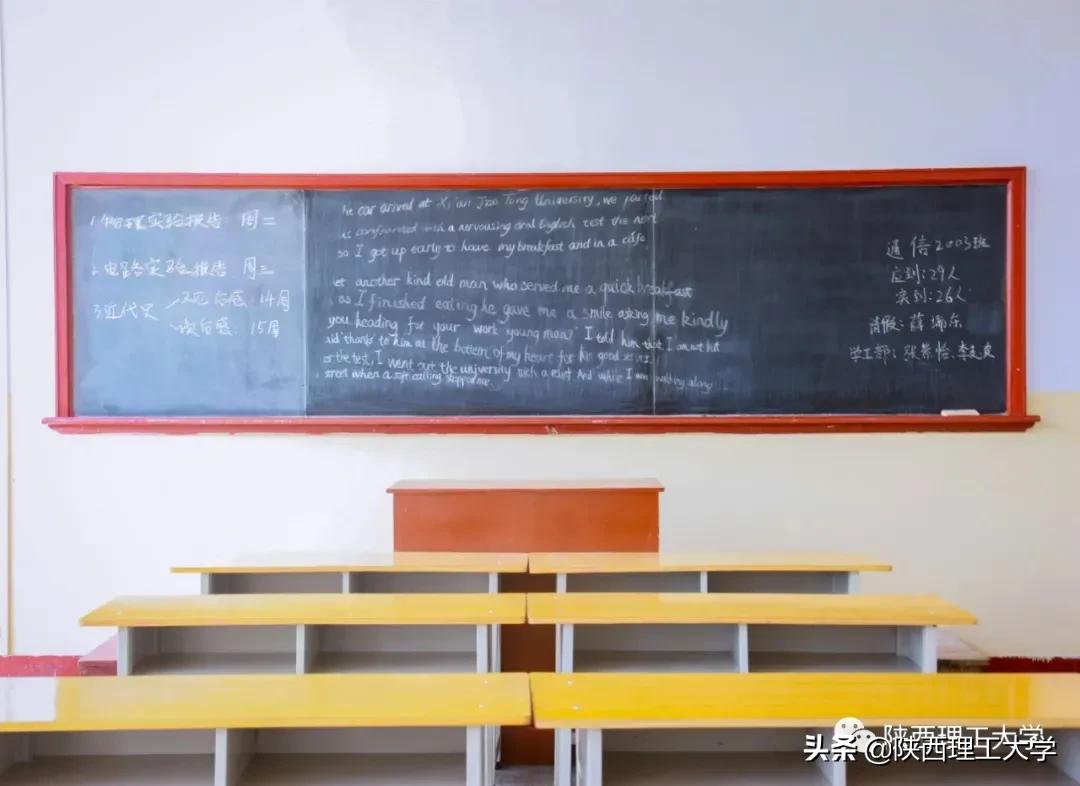 1.物理实验报告 周二
2.电路实验报告 周三
3.近代史 观后感 14周
读后感 15周
he car arrived at Xi'an Jiao Tong University, we parted
is confronted with a nervousing and English test the next
so I got up early to have my breakfast and in a cafe
et another kind old man who served me a quick breakfast
as I finished eating he gave me a smile asking me kindly
you heading for your "work" young man?" I told him that I am not but
aid 'thanks' to him at the bottom of my heart for his good
or the test, I went out the university with a relief And while I was walking along
street when a soft calling stopped me
通信2003班
应到:29人
实到:26人
请假:薛
学工部:张 怡、李
陕西理工大学
头条@陕西理工大学